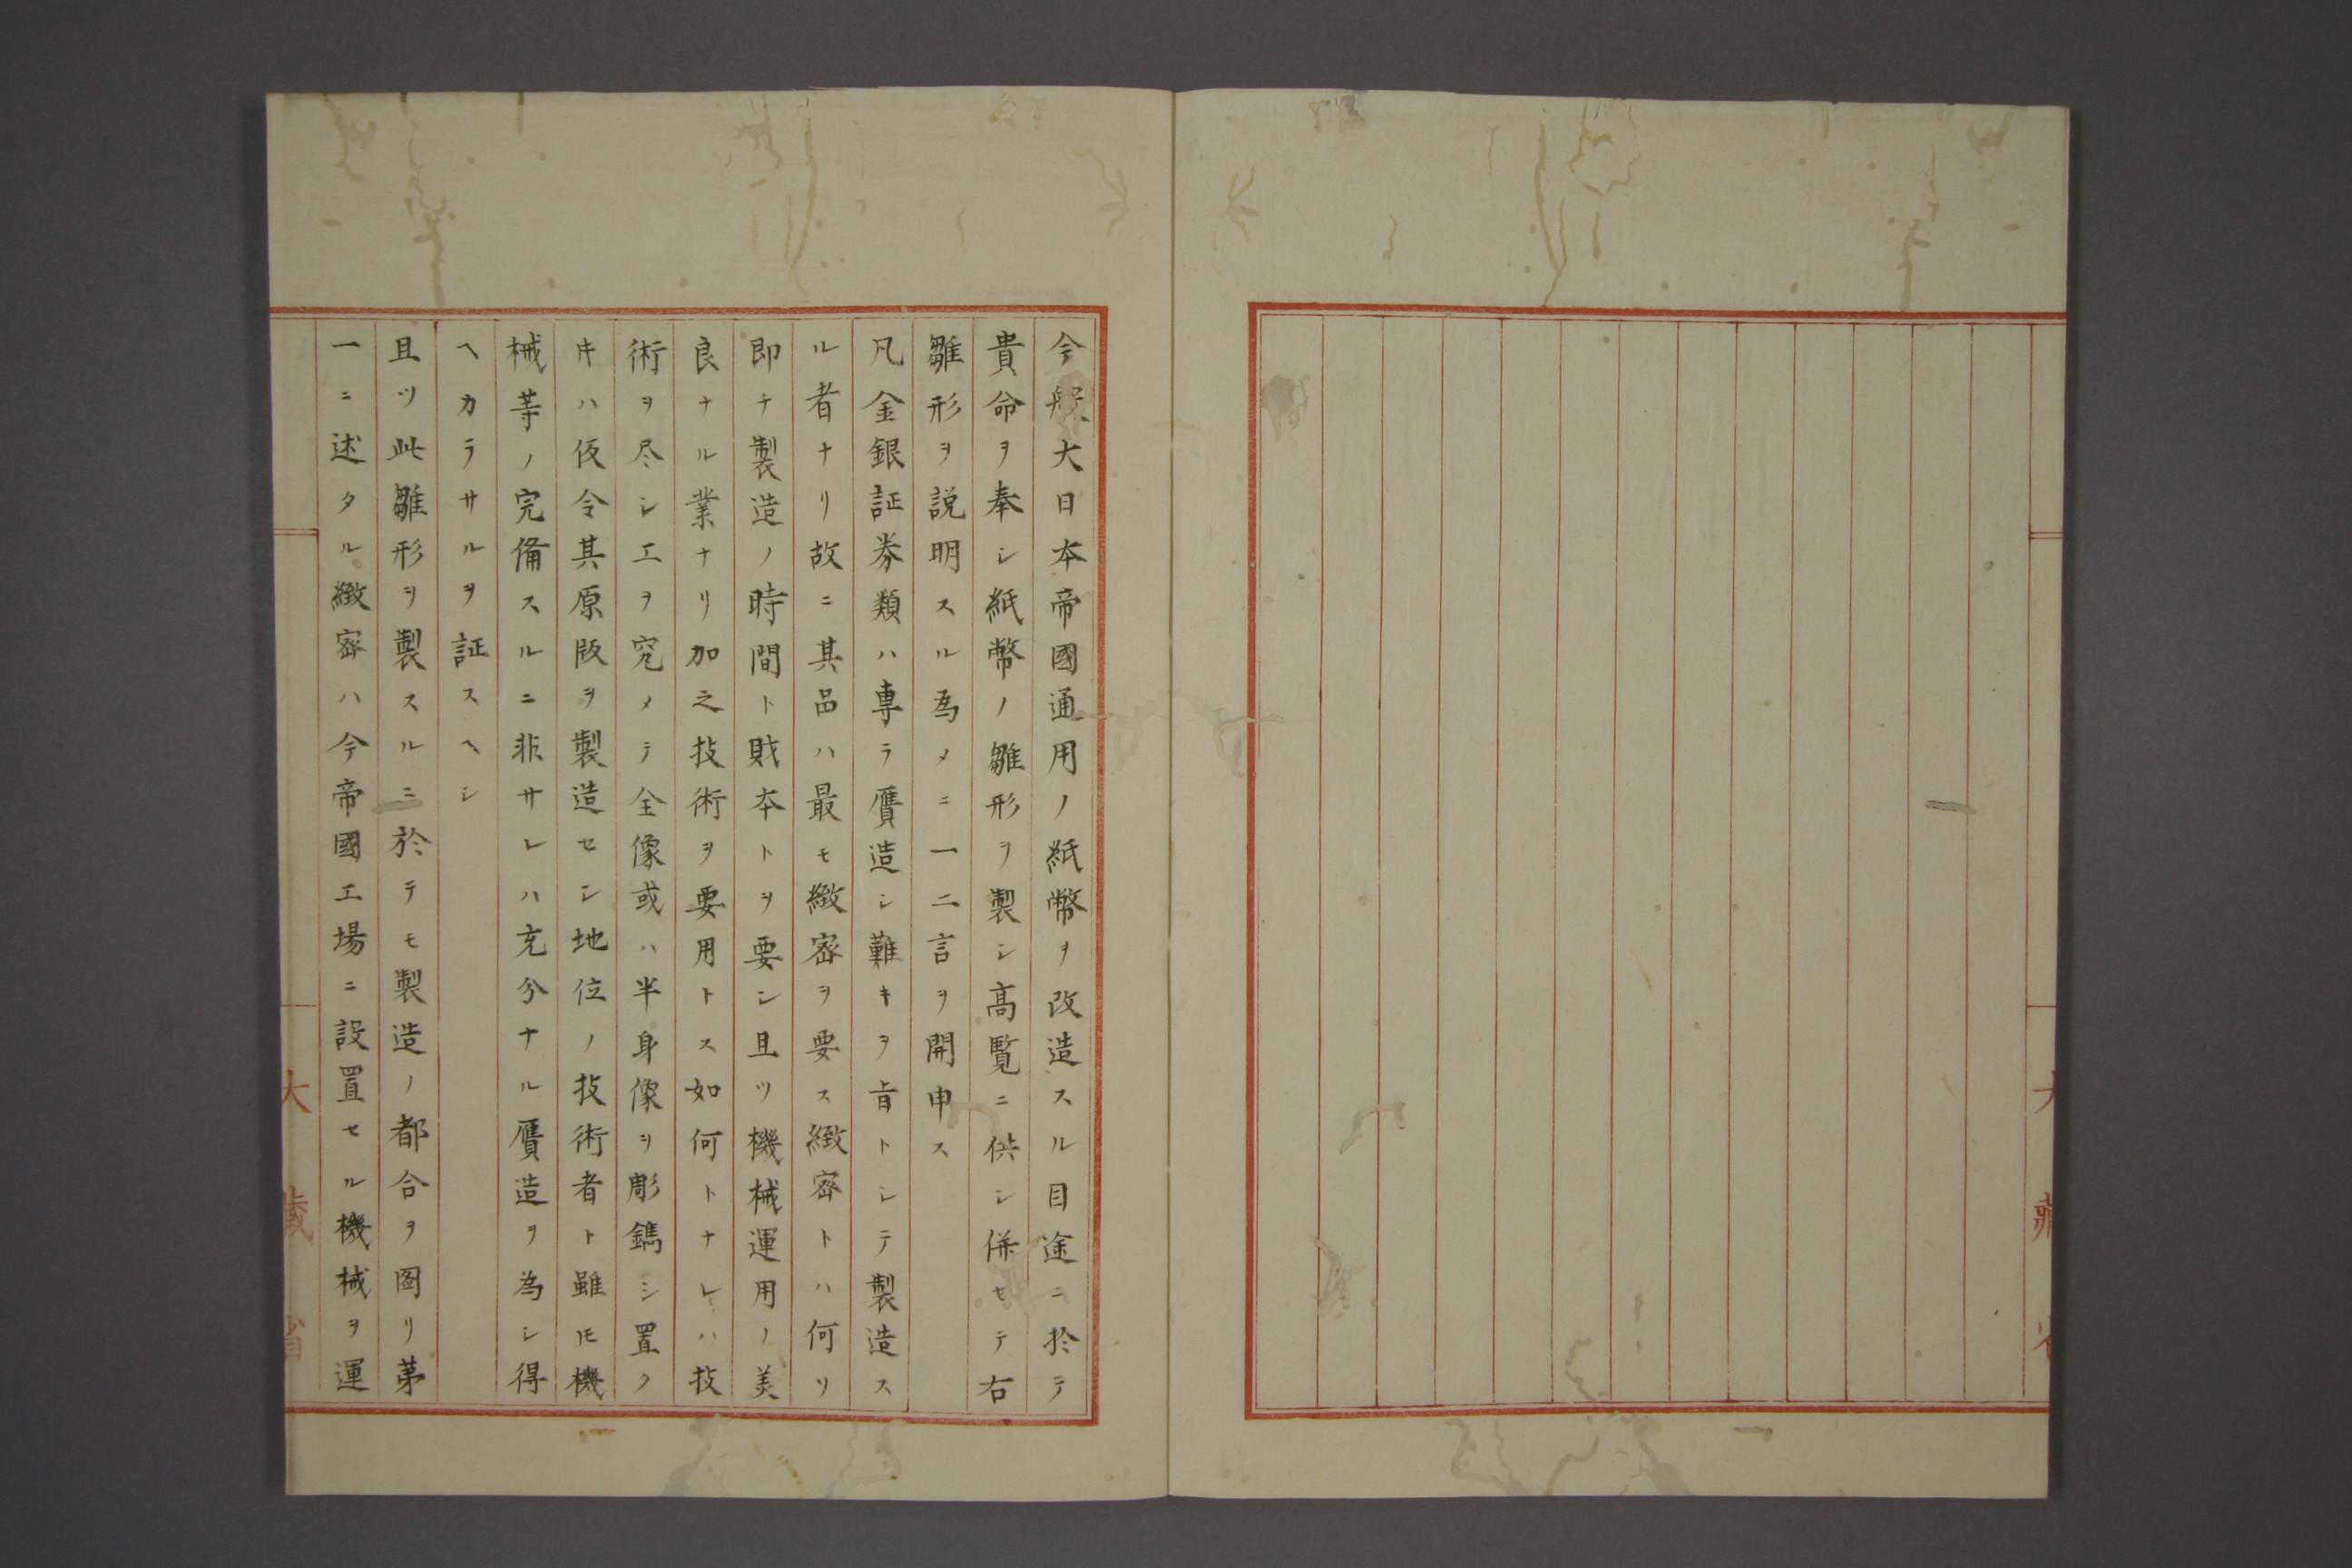 今般大日本帝國通用ノ紙幣ヲ改造スル目途ニ於テ
貴命ヲ奉シ紙幣ノ雛形ヲ製シ高覧ニ供シ併セテ右
雛形ヲ説明スル為メニ一二言ヲ開申ス
凡金銀証券類ハ専ラ贋造シ難キヲ旨トシテ製造ス
ル者ナリ故ニ其品ハ最モ緻密ヲ要ス緻密トハ何ソ
即チ製造ノ時間ト財本トヲ要シ且ツ機械運用ノ美
良ナル業ナリ加之技術ヲ要用トス如何トナレハ技
術ヲ尽シ工ヲ究メテ全像或ハ半身像ヲ彫鐫シ置ク
キハ仮令其原版ヲ製造セシ地位ノ技術者ト雖モ機
械等ノ完備スルニ非サレハ充分ナル贋造ヲ為シ得
ヘカラサルヲ証スヘシ
且ツ此雛形ヲ製スルニ於テモ製造ノ都合ヲ図リ第
一ニ述タル緻密ハ今帝國工場ニ設置セル機械ヲ運
大藏省